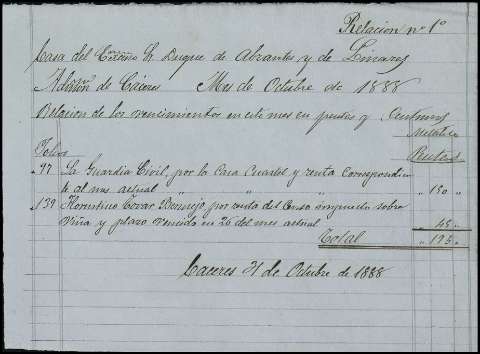 Relacion nº 1º
Casa del Excmo Sr Duque de Abrantes y de Linares
Admon de Cáceres Mes de Octubre de 1888
Relacion de los vencimientos en este mes en pesetas y Centimos
Metalico
Folios Pesetas
97 La Guardia Civil, por la Casa Cuartel y renta correspondien
te al mes actual " " " " 150 "
139 Florentino Tovar Bermejo, por renta del Censo impuesto sobre
Viña y plazo vencido en 26 del mes actual " 43 "
Total " 193 "
Caceres 31 de Octubre de 1888